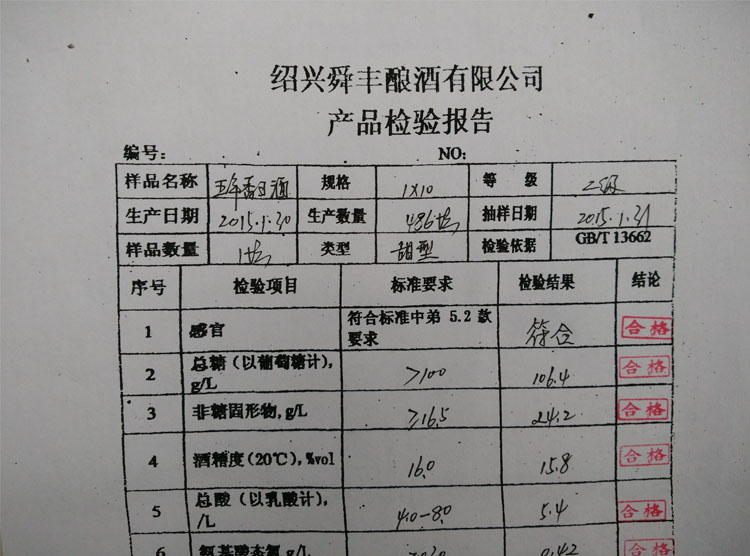 绍兴舜丰酿酒有限公司
产品检验报告
编号: NO:
样品名称 五年香雪酒 规格 1×10 等 级 二级
生产日期 2015.1.30 生产数量 486坛 抽样日期 2015.1.31
样品数量 1坛 类型 甜型 检验依据 GB/T 13662
序号 检验项目 标准要求 检验结果 结论
1 感官 符合标准中弟 5.2 款 符合 合格
要求
2 总糖(以葡萄糖计), >100 106.4 合格
g/L
3 非糖固形物,g/L ≥16.5 24.2 合格
4 酒精度(20℃),%vol 16.0 15.8 合格
5 总酸(以乳酸计), 4.0-8.0 5.4 合格
/L
6 氨基酸态氮,g/L 0.42 合格